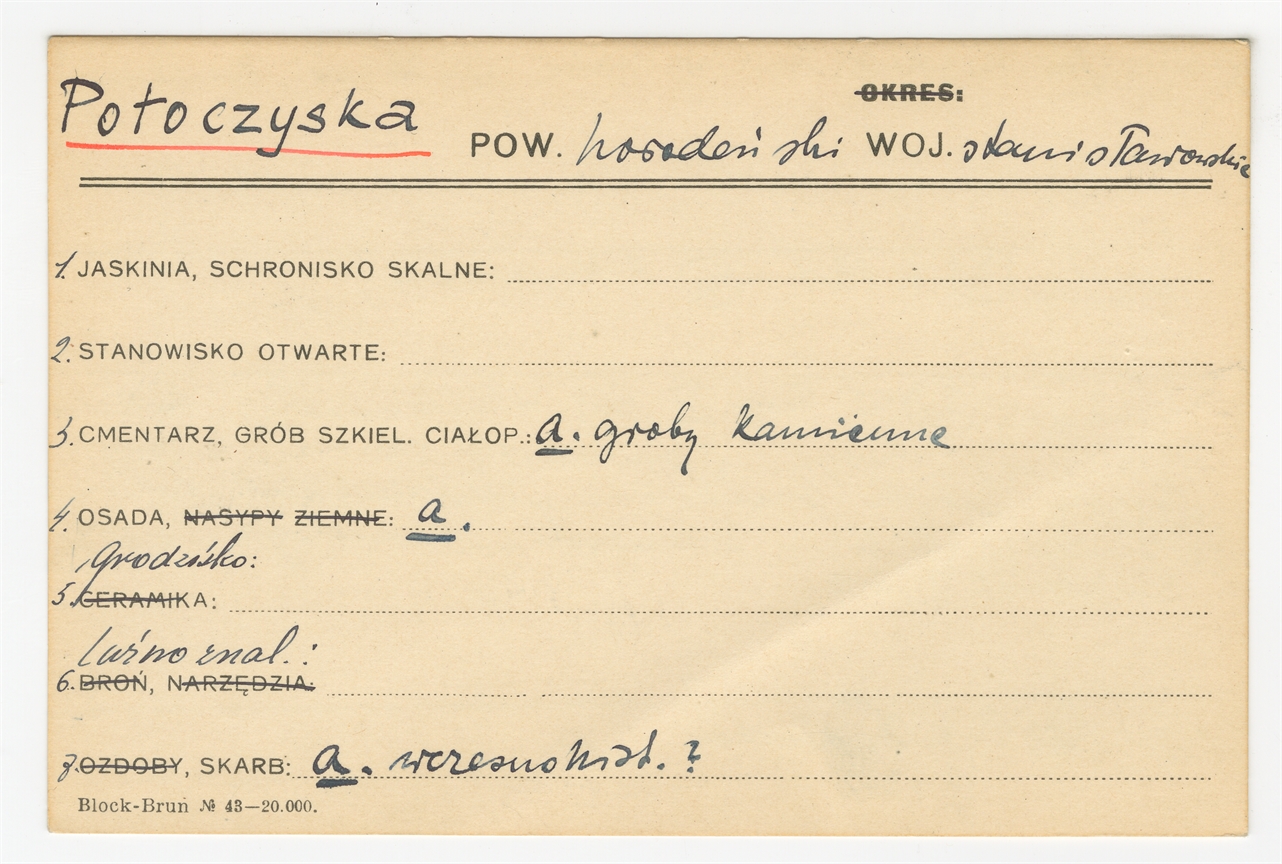 OKRES:
Potoczyska POW. horodeński WOJ. stanisławowskie
1. JASKINIA, SCHRONISKO SKALNE:
2. STANOWISKO OTWARTE:
3. CMENTARZ, GRÓB SZKIEL. CIAŁOP.: a. groby kamienne
4. OSADA, NASYPY ZIEMNE: a.
grodzisko:
5. CERAMIKA:
luźno znal.:
6. BROŃ, NARZĘDZIA:
7. OZDOBY, SKARB: a. wczesnohist. ?
Block-Brun № 43—20.000.